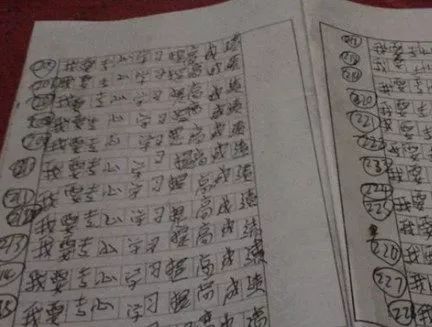 我要专心学习提高成绩
我要专心学习提高成绩
我要专心学习提高成绩
我要专心学习提高成绩
209 我要专心学习提高成绩
我要专心学习提高成绩
211 我要专心学习提高成绩
212 我要专心学习提高成绩
213 我要专心学习提高成绩
我要专心学习提高成绩
我要专心学习提高成绩
217 我要专心
218 我要专
219 我要专
220 我要
221 我要
222 我要
223 我要
224 我要
225 我要
226 我
227 我
228 我